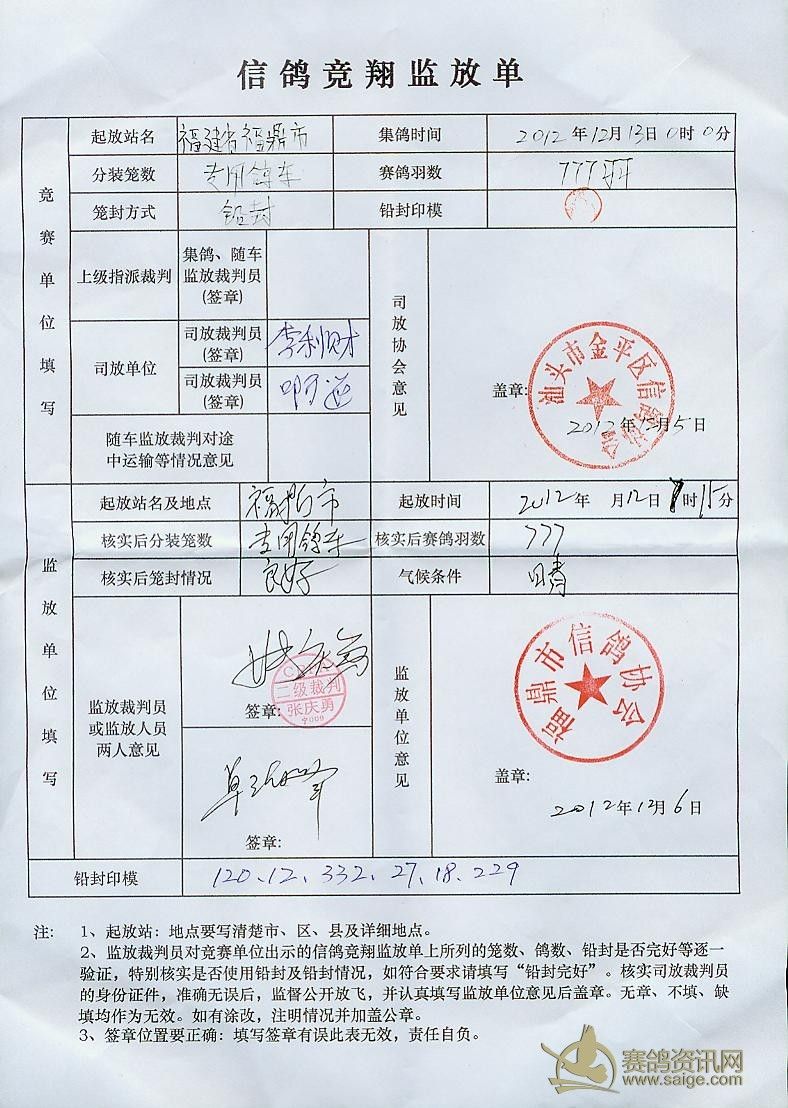 信鸽竞翔监放单
竞赛单位填写
起放站名 福建省福鼎市 集鸽时间 2012年12月13日0时0分
分装笼数 专用鸽车 赛鸽羽数 777羽
笼封方式 铅封 铅封印模
上级指派裁判 集鸽、随车
监放裁判员
(签章)
司放单位 司放裁判员
(签章) 李利财
司放裁判员
(签章)
随车监放裁判对途
中运输等情况意见
司放协会意见
汕头市金平区信鸽协会
盖章:
2012年12月5日
监放单位填写
起放站名及地点 起放时间 2012年 月12日 时15分
核实后分装笼数 专用鸽车 核实后赛鸽羽数 777
核实后笼封情况 良好 气候条件 晴
监放裁判员
或监放人员
两人意见
二级裁判
张庆勇
签章:
签章:
监放单位意见
福鼎市信鸽协会
盖章:
2012年12月6日
铅封印模 120、12、332、27、18、229
注: 1、起放站:地点要写清楚市、区、县及详细地点。
2、监放裁判员对竞赛单位出示的信鸽竞翔监放单上所列的笼数、鸽数、铅封是否完好等逐一
验证，特别核实是否使用铅封及铅封情况，如符合要求请填写“铅封完好”。核实司放裁判员
的身份证件，准确无误后，监督公开放飞，并认真填写监放单位意见后盖章。无章、不填、缺
填均作为无效。如有涂改，注明情况并加盖公章。
3、签章位置要正确：填写签章有误此表无效，责任自负。
赛鸽资讯网
www.saige.com